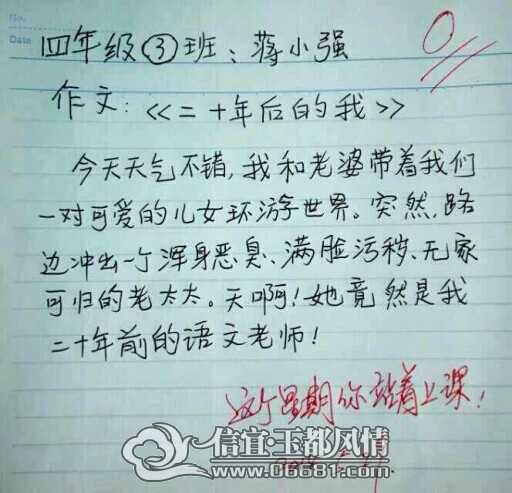 No.
Date
四年级③班：蒋小强
0
作文：《二十年后的我》
今天天气不错，我和老婆带着我们
一对可爱的儿女环游世界。突然，路
边冲出一个浑身恶臭、满脸污秽、无家
可归的老太太。天啊！她竟然是我
二十年前的语文老师！
这个星期你站着上课！
信宜·玉都风情
www.06681.com